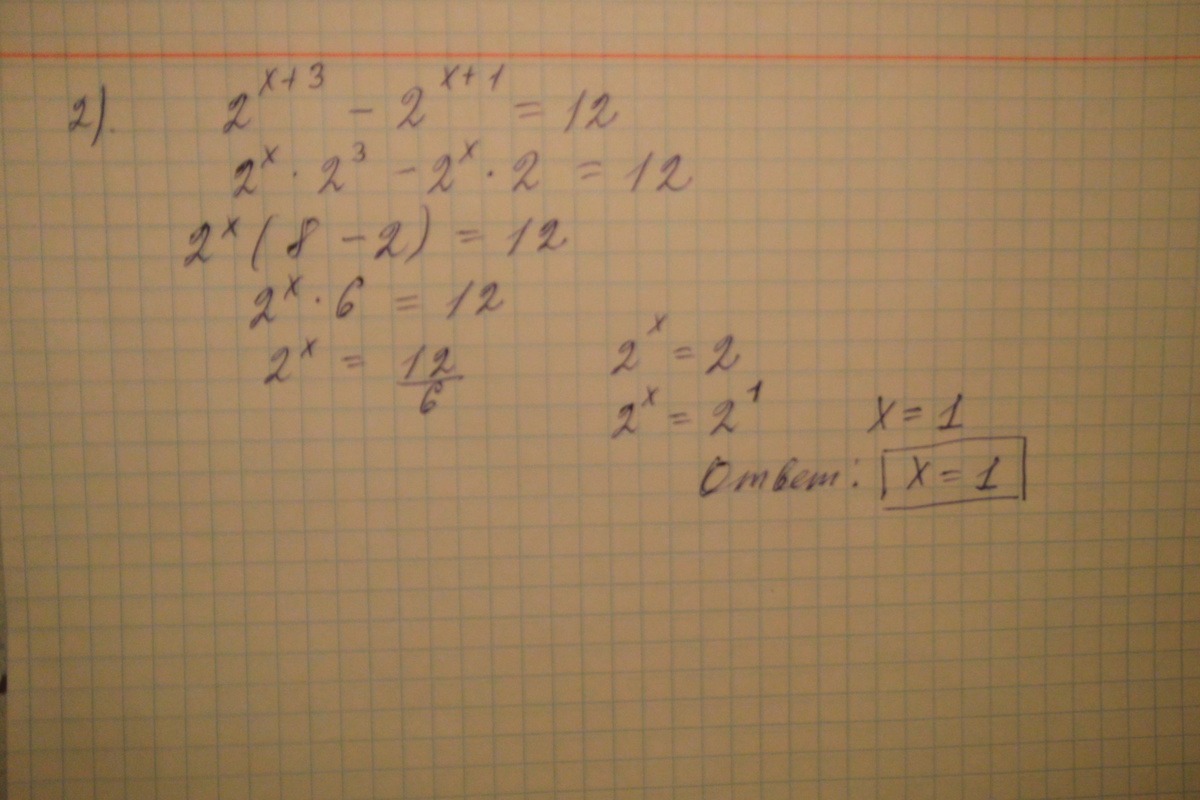 2). 2^{x+3} - 2^{x+1} = 12
2^x · 2^3 - 2^x · 2 = 12
2^x (8 - 2) = 12
2^x · 6 = 12
2^x = 12/6
2^x = 2
2^x = 2^1 x = 1
Ответ: x = 1